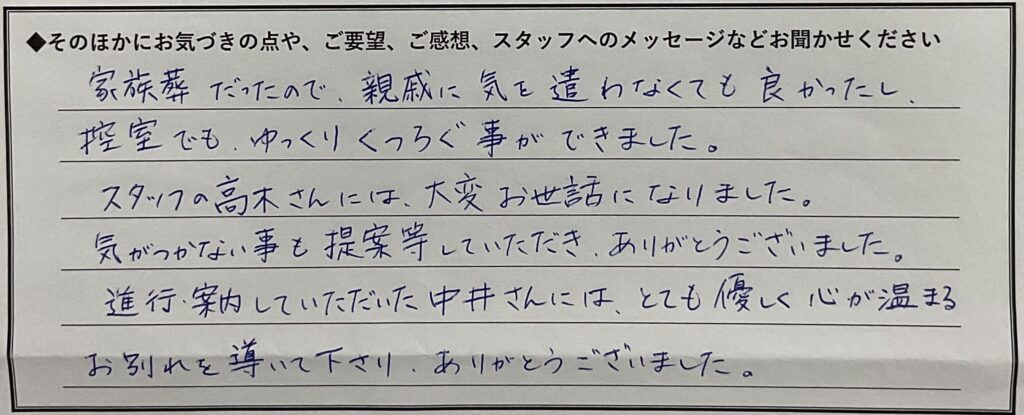 ◆そのほかにお気づきの点や、ご要望、ご感想、スタッフへのメッセージなどお聞かせください
家族葬だったので、親戚に気を遣わなくても良かったし、
控室でも、ゆっくりくつろぐ事ができました。
スタッフの高木さんには、大変お世話になりました。
気がつかない事も提案等していただき、ありがとうございました。
進行・案内していただいた中井さんには、とても優しく心が温まる
お別れを導いて下さり、ありがとうございました。